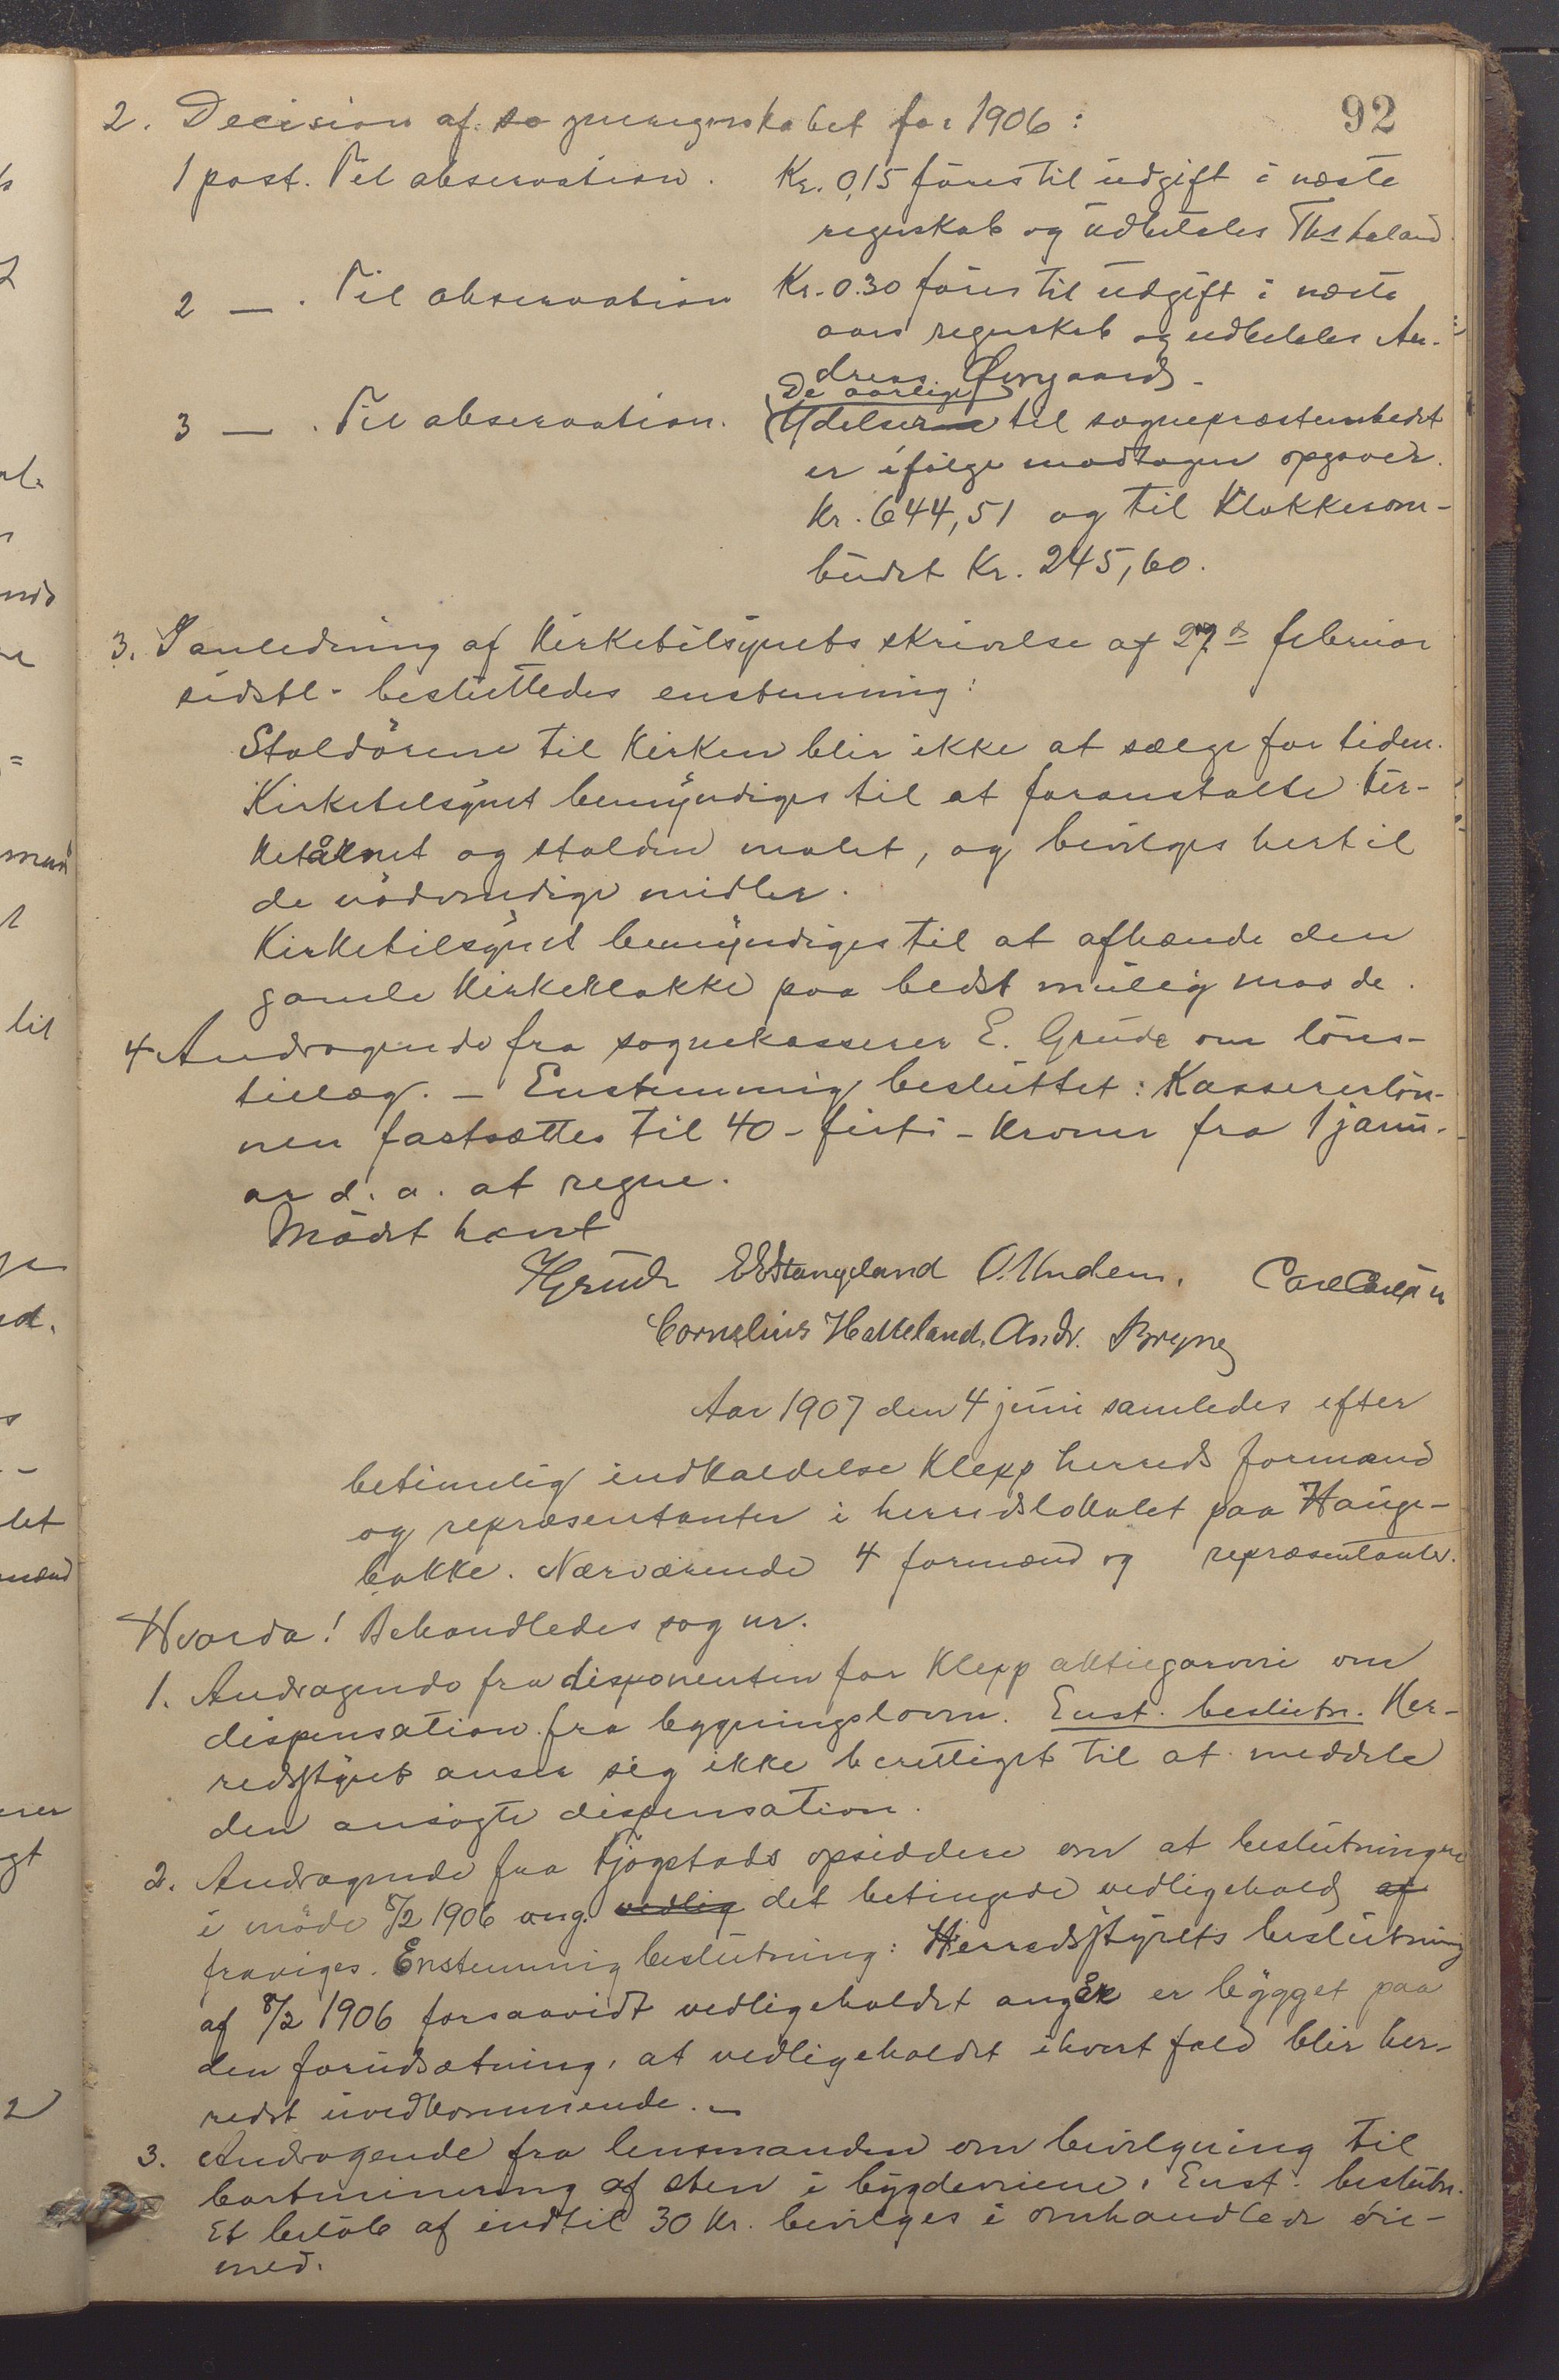 92
2. Decision af so gneregnskabet for 1906:
1 post. Til observation. Kr. 0,15 føres til udgift i næste
regnskab og udbetales Ths Laland.
2 — . Til observation Kr. 0.30 føres til udgift i næste
aars regnskab og udbetales An-
dreas Øvrgaard.
De aarlige
3 — . Til observation. Ydelser til sogneprestembedet
er ifølge modtagen opgaver.
Kr. 644,51 og til Klokkerom-
budet Kr. 245,60.
3. I anledning af Kirketilsynets skrivelse af 27de februar
sidstl. besluttedes enstemmig:
Stoldørene til Kirken blir ikke at sælge for tiden.
Kirketilsynet bemyndiges til at foranstalte kir-
ketårnet og stolden malet, og bevilges hertil
de nødvendige midler.
Kirketilsynet bemyndiges til at afhænde den
gamle Kirkeklokke paa bedst mulig maade.
4 Andragende fra sognekasserer E. Grude om løns-
tillæg. — Enstemmig besluttet: Kassererløn-
nen fastsættes til 40 - firti - Kroner fra 1 janu-
ar d. a. at regne.
Mødet hævet
HGrude EEStangeland O. Undem. Carl Carlsen
Cornelius Hatteland. Andr. Bryne
Aar 1907 den 4 juni samledes efter
betimelig indkaldelse Klepp herreds formænd
og repræsentanter i herredslokalet paa Hauge-
bakke. Nærværende 4 formænd og repræsentanter.
Hvorda! Behandledes sag nr.
1. Andragende fra disponenten for Klepp aktiegarveri om
dispensation fra bygningsloven. Enst. beslutn. Her-
redsstyret anser sig ikke berettiget til at meddele
den ansøgte dispensation.
2. Andragende fra Tjøgstads opsiddere om at beslutningen
i møde 8/2 1906 ang. vedlig det betingede vedligehold af
fraviges. Enstemmig beslutning: Herredsstyrets beslutning
af 8/2 1906 forsaavidt vedligeholdet angår er bygget paa
den forudsætning, at vedligeholdet ihvert fald blir her-
redet uvedkommende. —
3. Andragende fra lensmanden om bevilgning til
bortminering af sten i bygdeveiene. Enst. beslutn.
Et beløb af indtil 30 Kr. bevilges i omhandlede øie-
med.